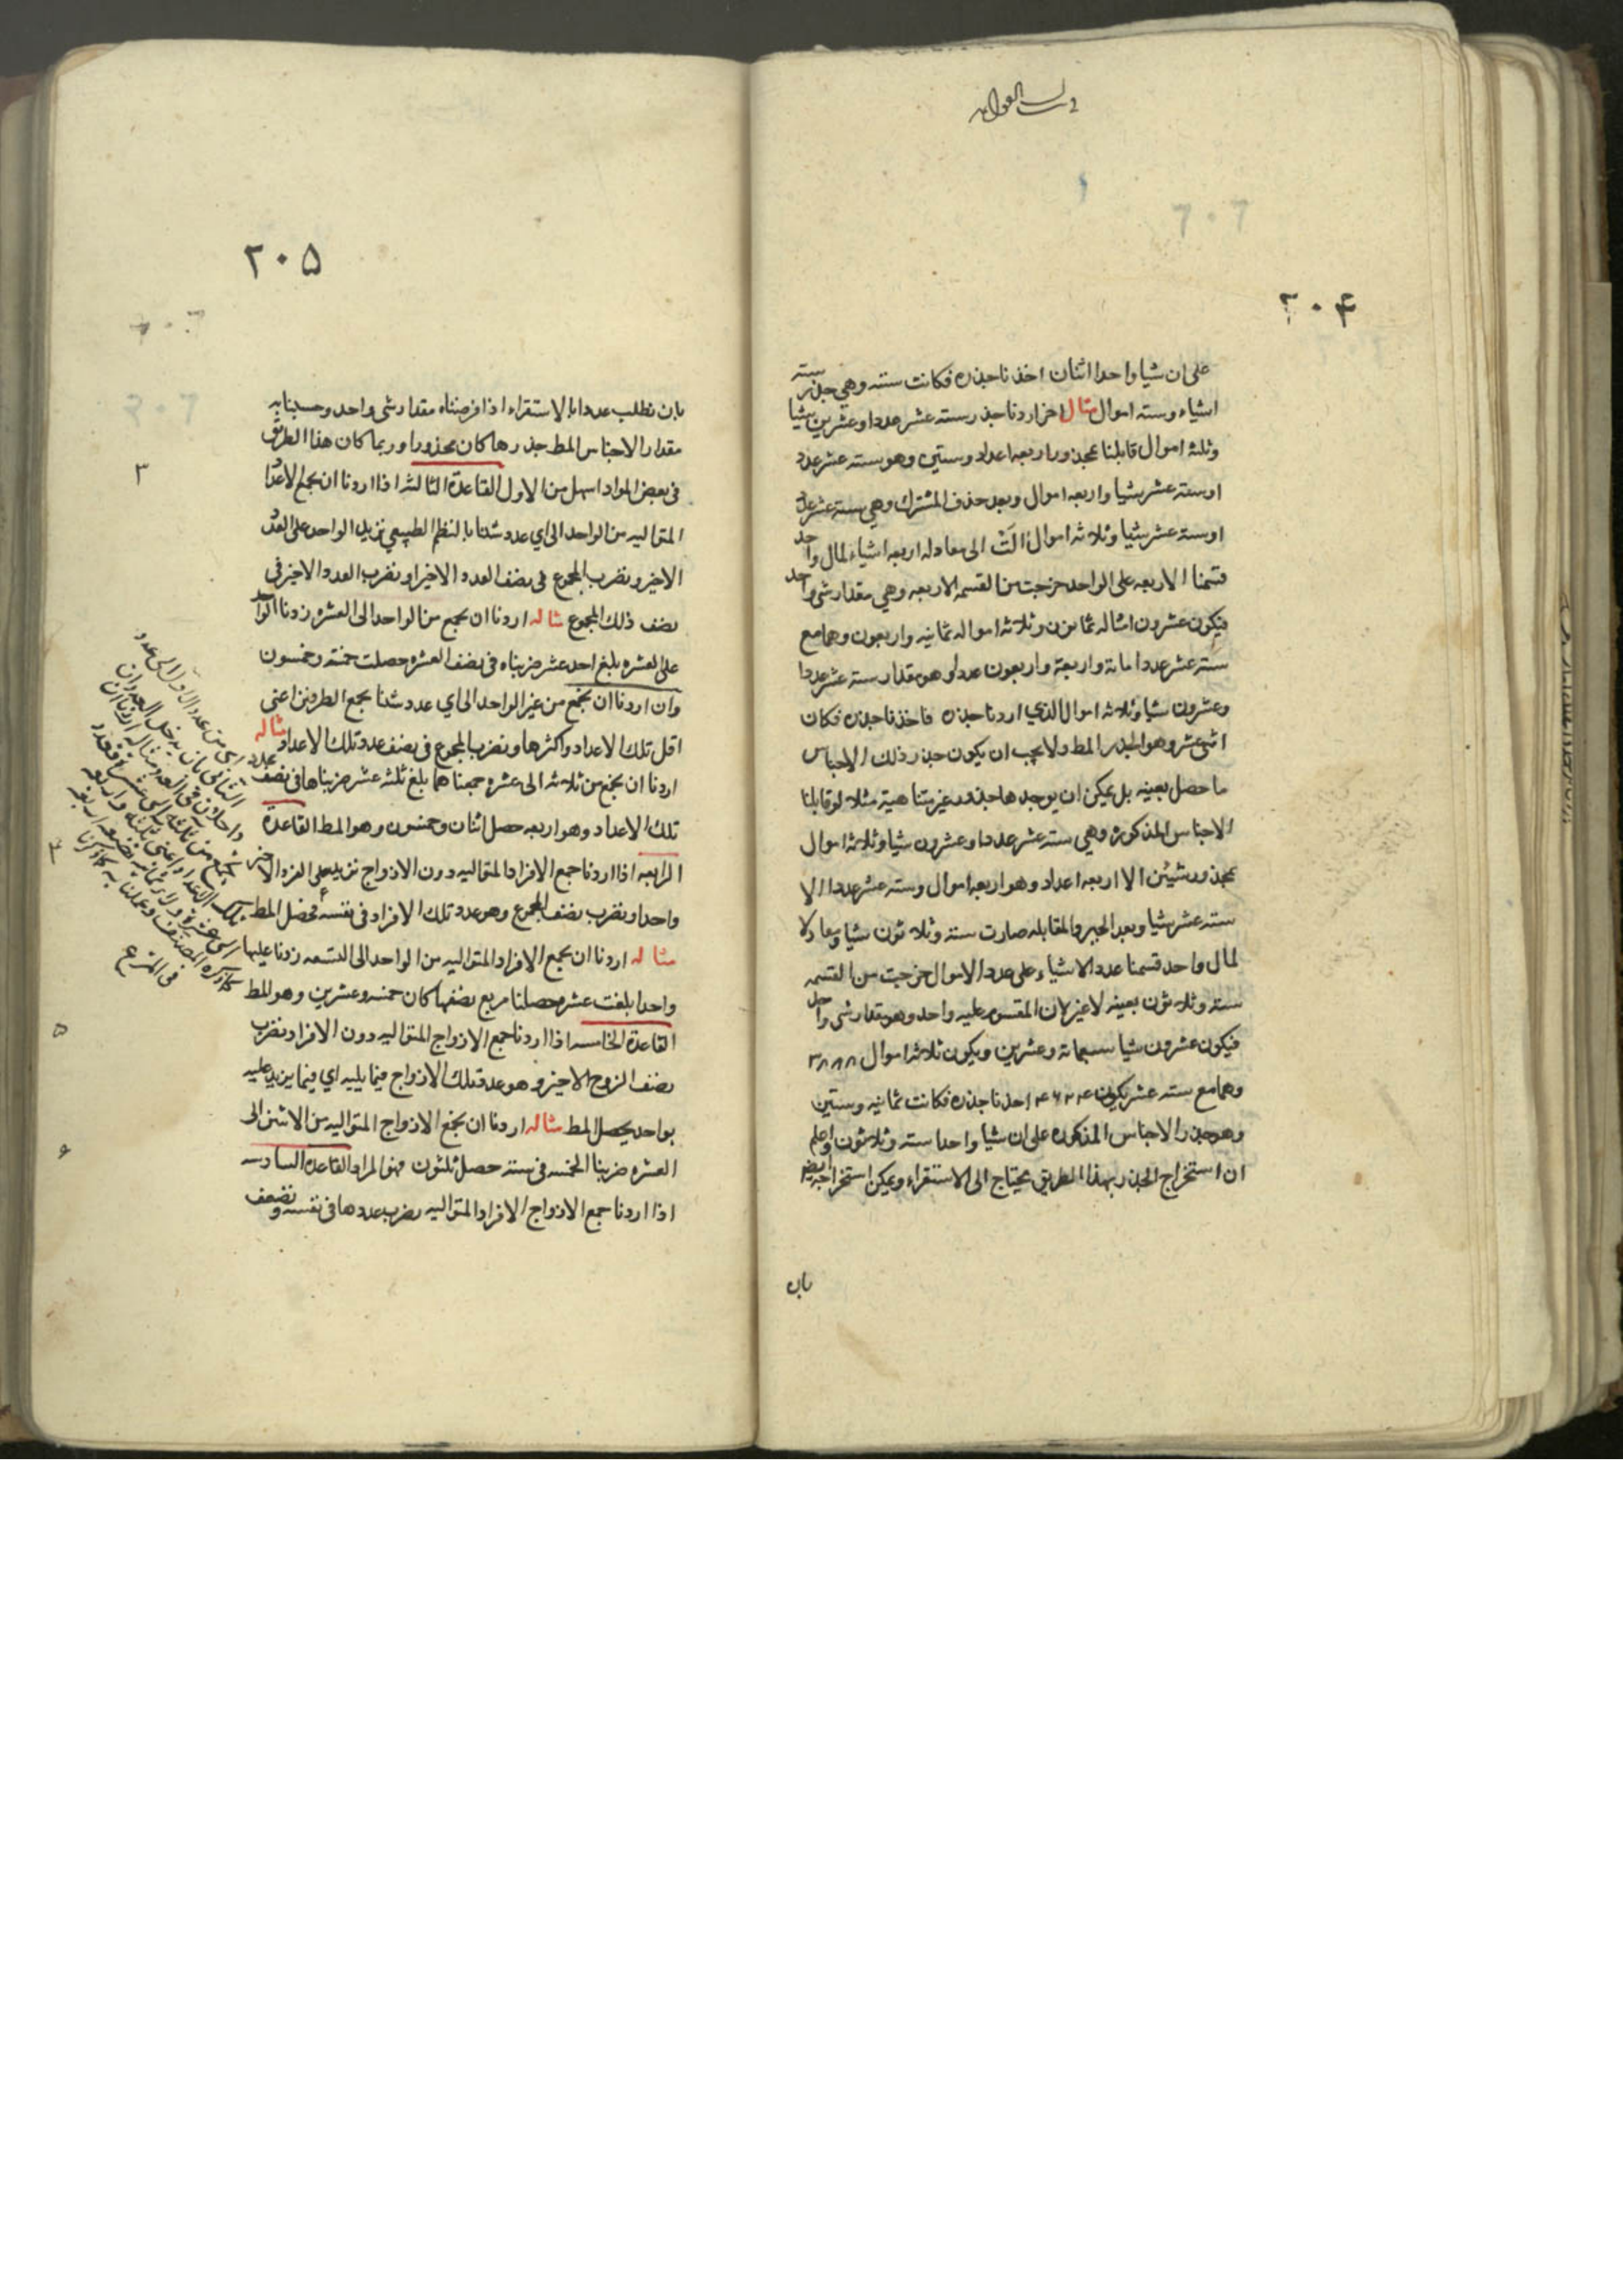 ٢٠۴
على ان شيا واحدا اثنان اخذنا جذره فكانت ستة وهي جذر ستة
اشياء وستة اموال مثال اخر اردنا جذر ستة عشر عددا وعشرين شيا
وثلثة اموال قابلنا بمجذور اربعة اعداد وستين وهو ستة عشر عدد
او ستة عشر شيا واربعة اموال وبعد حذف المشترك وهي ستة عشر عدد
او ستة عشر شيا وثلاثة اموال الت الى معادلة اربعة اشياء لمال واحد
قسمنا الاربعة على الواحد خرجت من القسمة الاربعة وهي مقدار شي واحد
فيكون عشرون امثاله ثمانون وثلاثة امواله ثمانية واربعون وهما مع
ستة عشر عددا مائة واربعة واربعون عددا وهو مقدار ستة عشر عددا
وعشرون شيا وثلاثة اموال الذي اردنا جذره فاخذنا جذره فكان
اثنى عشر وهو الجذر المط ولا يجب ان يكون جذر ذلك الاجناس
ما حصل بعينه بل يمكن ان يوجد ها جذور غير متناهية مثلا لو قابلنا
الاجناس المذكورة وهي ستة عشر عددا وعشرون شيا وثلاثة اموال
بمجذور شيئين الا اربعة اعداد وهو اربعة اموال وستة عشر عددا الا
ستة عشر شيا وبعد الجبر والمقابلة صارت ستة وثلاثون شيا معادلا
لمال واحد قسمنا عدد الاشياء على عدد الاموال خرجت من القسمة
ستة وثلاثون بعينه لا غير لان المقسوم عليه واحد وهو مقدار شي واحد
فيكون عشرون شيا سبعمائة وعشرين ويكون ثلاثة اموال ٣٨٨٨
وهما مع ستة عشر يكون ۴۶۲۴ اخذنا جذره فكانت ثمانية وستين
وهو جذر الاجناس المذكورة على ان شيا واحدا ستة وثلاثون واعلم
ان استخراج الجذر بهذا الطريق يحتاج الى الاستقراء ويمكن استخراجه ايضا
بان
٢٠۵
بان نطلب عددا بالاستقراء اذا فرضناه مقدار شي واحد وحسبنا به
مقدار الاجناس المط جذرها كان مجذورا وربما كان هذا الطريق
في بعض المواد اسهل من الاول القاعدة الثالثة اذا اردنا ان نجمع الاعداد
المتوالية من الواحد الى اي عدد شئنا بالنظم الطبيعي نزيد الواحد على العدد
الاخير ونضرب المجموع في نصف العدد الاخير او نضرب العدد الاخير في
نصف ذلك المجموع مثاله اردنا ان نجمع من الواحد الى العشرة زدنا الواحد
على العشرة بلغ احد عشر ضربناه في نصف العشرة حصلت خمسة وخمسون
وان اردنا ان نجمع من غير الواحد الى اي عدد شئنا نجمع الطرفين اعني
اقل تلك الاعداد واكثرها ونضرب المجموع في نصف عدد تلك الاعداد مثاله
اردنا ان نجمع من ثلاثة الى عشرة جمعناهما بلغ ثلثة عشر ضربناها في نصف عدد
تلك الاعداد وهو اربعة حصل اثنان وخمسون وهو المط القاعدة
الرابعة اذا اردنا جمع الافراد المتوالية دون الازواج نزيد على الفرد الاخير
واحدا ونضرب نصف المجموع وهو عدد تلك الافراد في نفسه فحصل المط
مثاله اردنا ان نجمع الافراد المتوالية من الواحد الى التسعة زدنا عليها
واحدا بلغت عشرة حصلنا مربع نصفها كان خمسة وعشرين وهو المط
القاعدة الخامسة اذا اردنا جمع الازواج المتوالية دون الافراد نضرب
نصف الزوج الاخير وهو عدة تلك الازواج فيما يليه اي فيما يزيد عليه
بواحد يحصل المط مثاله اردنا ان نجمع الازواج المتوالية من الاثنين الى
العشرة ضربنا الخمسة في ستة حصل ثلثون فهو المراد القاعدة السادسة
اذا اردنا جمع الازواج الافراد المتوالية نضرب عددها في نفسه ونضعف
٣
۴
۵
۶